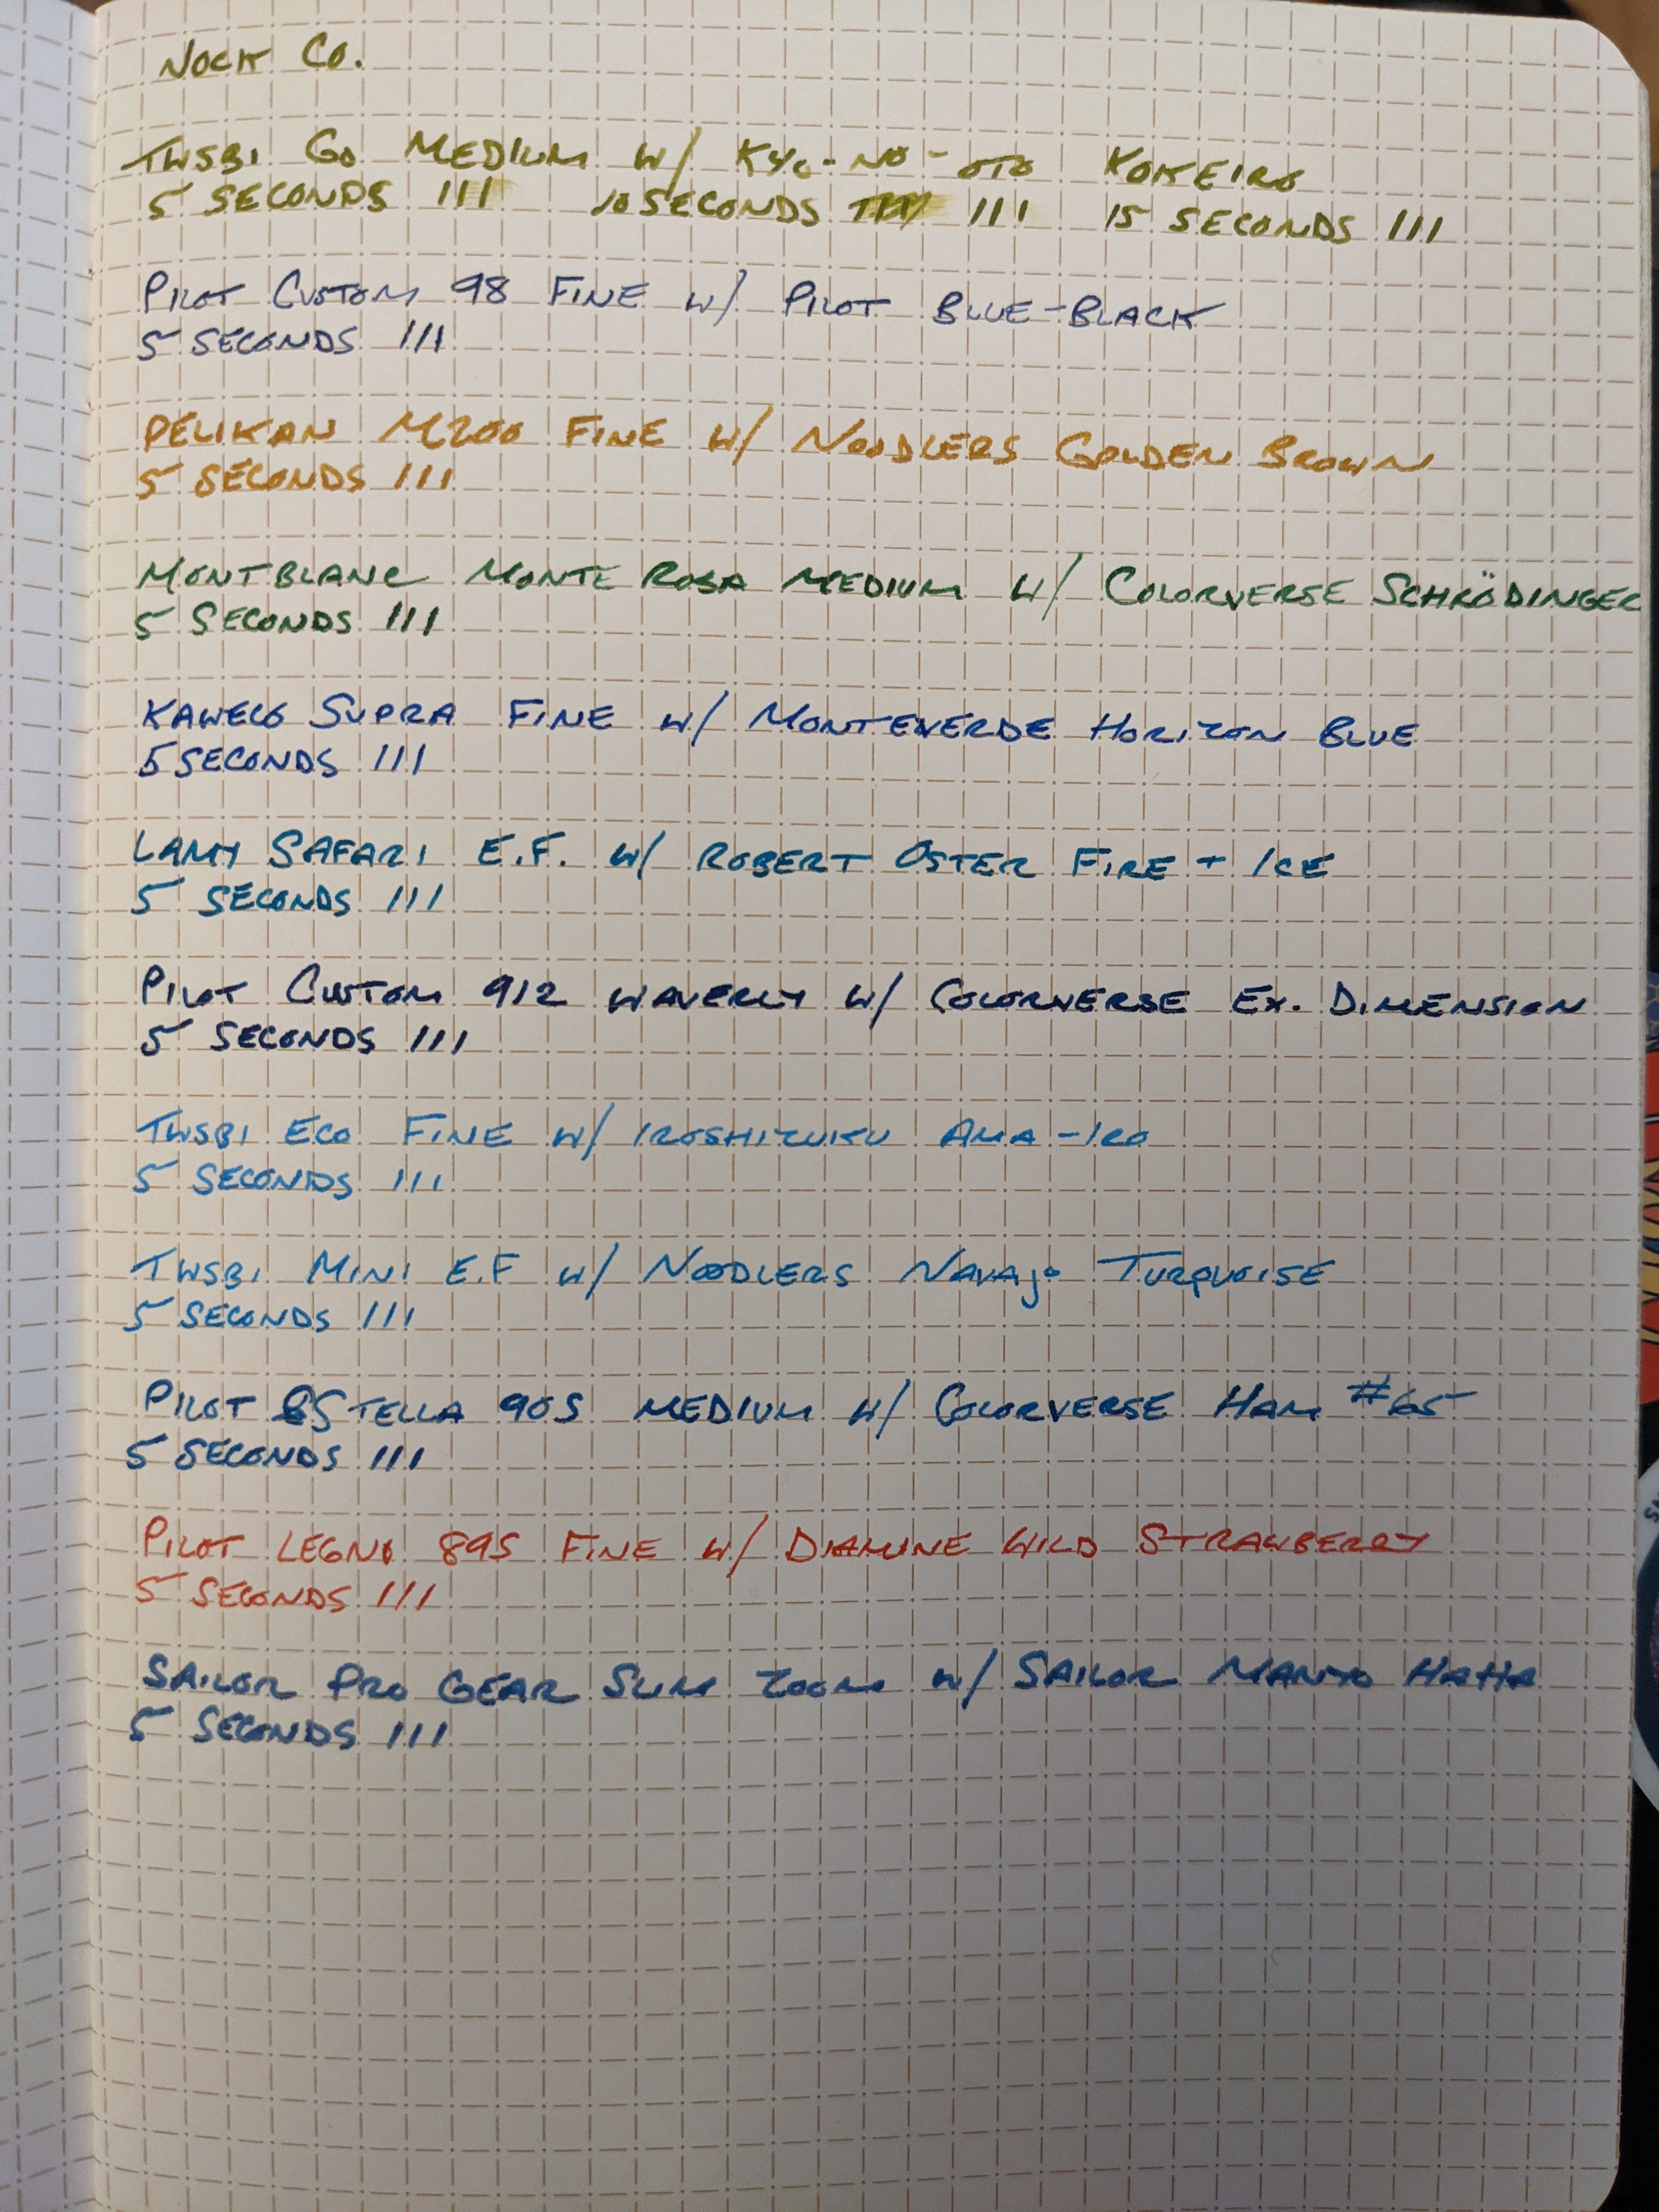 NOCK CO.
TWSBI GO MEDIUM W/ KYO-NO-OTO KOKEIRO
5 SECONDS III 10 SECONDS III 15 SECONDS III
PILOT CUSTOM 98 FINE W/ PILOT BLUE-BLACK
5 SECONDS III
PELIKAN M200 FINE W/ NOODLERS GOLDEN BROWN
5 SECONDS III
MONTBLANC MONTE ROSA MEDIUM W/ COLORVERSE SCHRÖDINGER
5 SECONDS III
KAWECO SUPRA FINE W/ MONTEVERDE HORIZON BLUE
5 SECONDS III
LAMY SAFARI E.F. W/ ROBERT OSTER FIRE + ICE
5 SECONDS III
PILOT CUSTOM 912 WAVERLY W/ COLORVERSE EX. DIMENSION
5 SECONDS III
TWSBI ECO FINE W/ IROSHIZUKU AMA-IRO
5 SECONDS III
TWSBI MINI E.F W/ NOODLERS NAVAJO TURQUOISE
5 SECONDS III
PILOT STELLA 90S MEDIUM W/ COLORVERSE HAM #65
5 SECONDS III
PILOT LEGNO 89S FINE W/ DIAMINE WILD STRAWBERRY
5 SECONDS III
SAILOR PRO GEAR SLIM ZOOM W/ SAILOR MANYO HAHA
5 SECONDS III